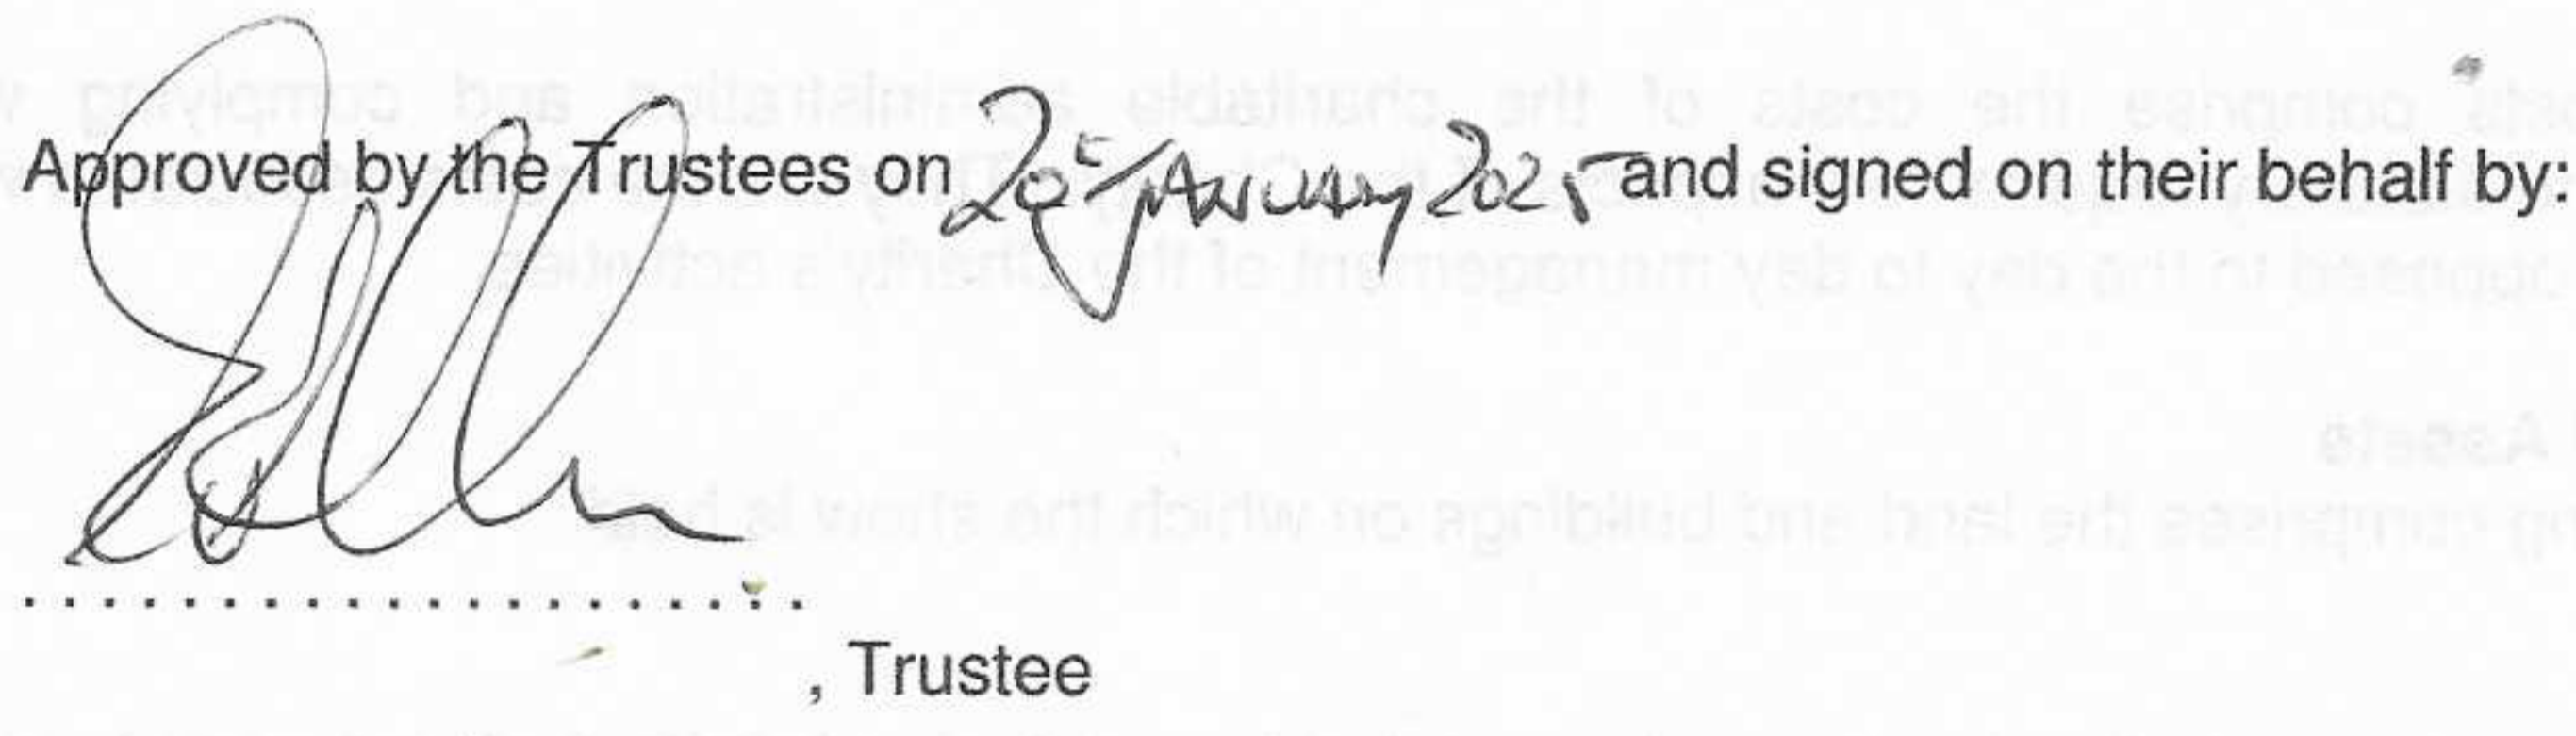 Approved by the Trustees on January 2025 and signed on their behalf by:
, Trustee